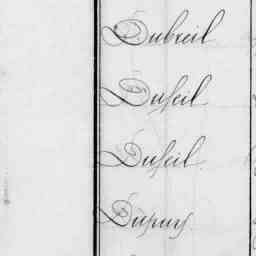 Dubreil
Duseil
Duseil.
Dupuy